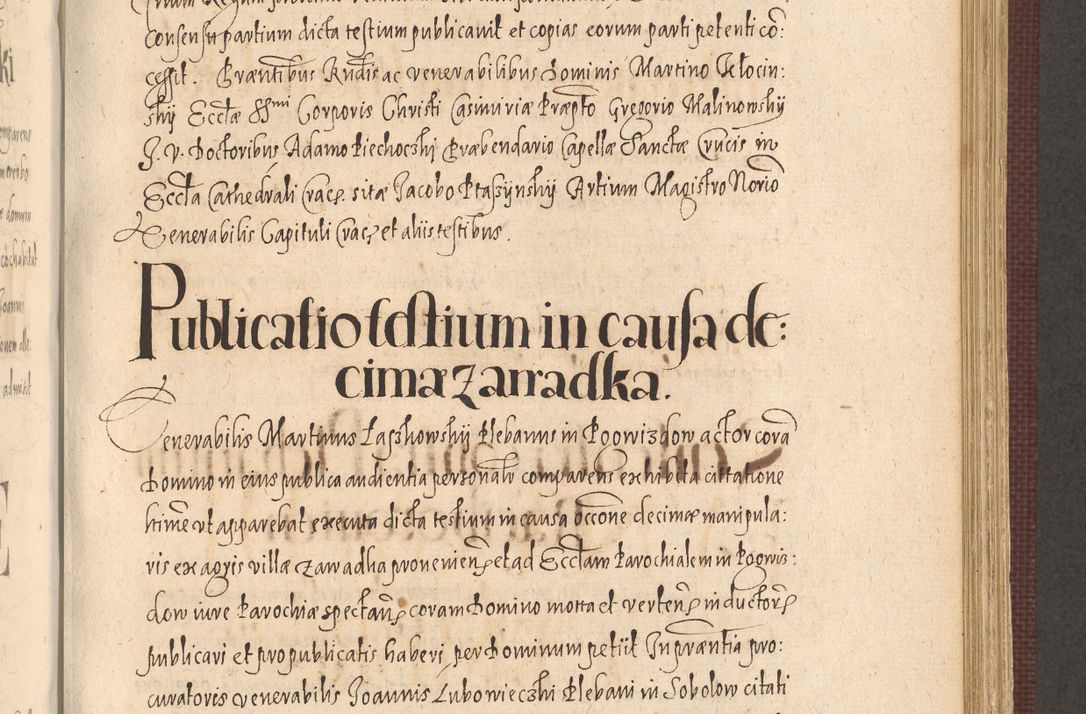 consensu partium dicta testium publicavit et copias eorum parti petenti co:
cessit. Præntibus Rndis ac venerabilibus Dominis Martino Klocin:
sky Eccłæ SSmi Corporis Christi Casimiriæ Præpto Gregorio Malinowsky
J. V. Doctoribus Adamo Piechoczki Præbendario Capellæ Sanctæ Crucis in
Eccła Cathedrali Crac. sitæ Jacobo Ptaszynsky Artium Magistro Norio
Venerabilis Capituli Crac. et aliis testibus.
Publicatio testium in causa de:
cimæ Zarradka.
Venerabilis Martinus Paszkowsky Plebanus in Pogwizdow actor corā
Domino in eius publica audientia personalr comparens exhibita cittatione
ltime ut apparebat executa dicta testium in causa occone decimæ manipula:
ris ex agris villæ Zawadka provenien et ad Ecclam Parochialem in Pogwiz:
dow iure Parochiæ spectan coram Domino mota et verten inductor
publicari et pro publicatis haberi per Dominum petiit In præntia pro:
curatoris venerabilis Joannis Lubowieczki Plebani in Sobolow citati